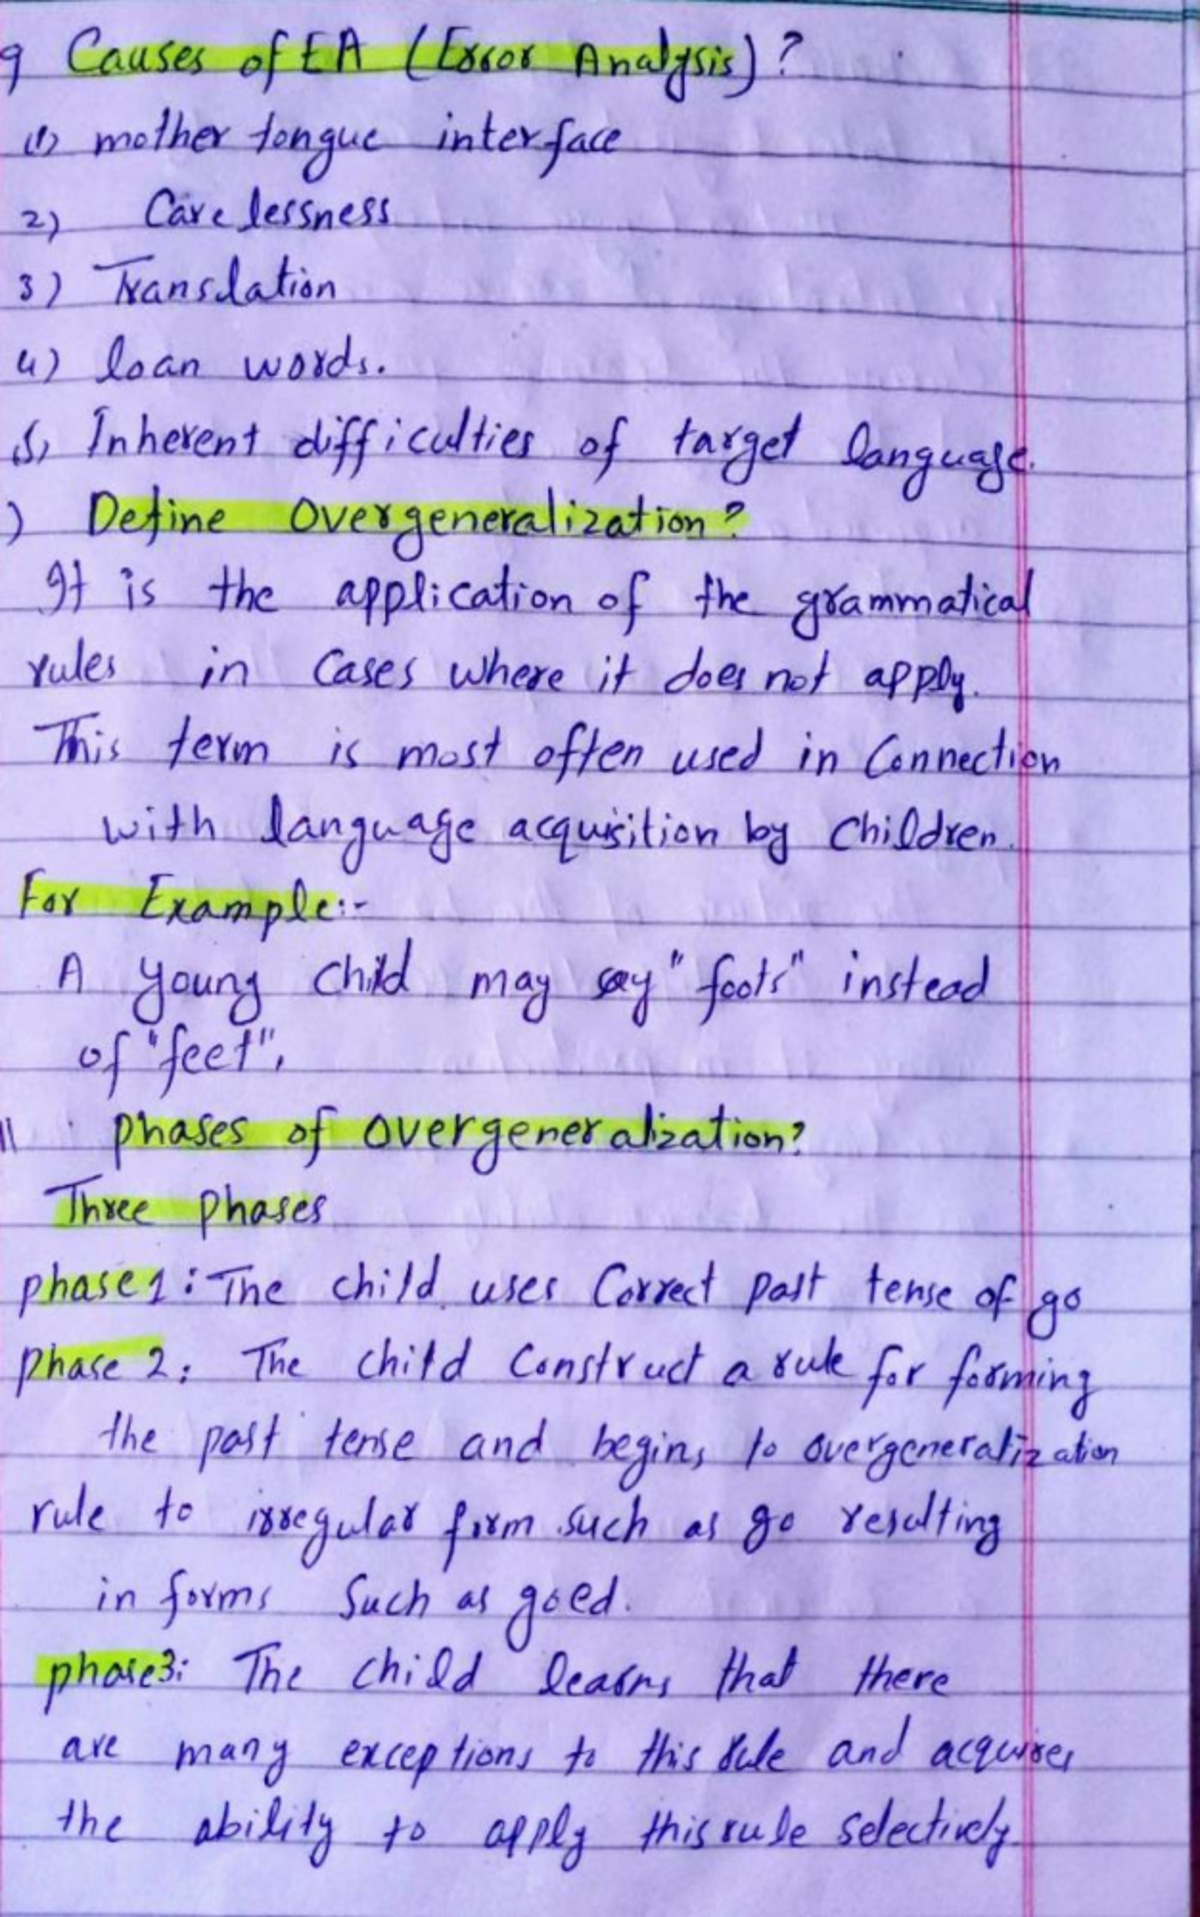 9 Causes of EA (Error Analysis)?
(1) mother tongue interface
2) Carelessness
3) Translation
4) loan words.
5) Inherent difficulties of target language.
) Define Overgeneralization?
It is the application of the grammatical
rules in Cases where it does not apply.
This term is most often used in Connection
with language acquisition by Children.
For Example:-
A young child may say "foots" instead
of "feet",
11 phases of overgeneralization?
Three phases
phase 1: The child uses Correct past tense of go
phase 2: The child Construct a rule for forming
the past tense and begins to overgeneralization
rule to irregular form such as go resulting
in forms Such as goed.
phase3: The child learns that there
are many exceptions to this rule and acquires
the ability to apply this rule selectively